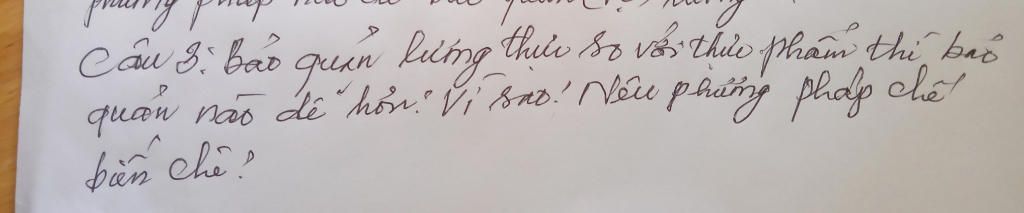 phương pháp
Câu 3: Bảo quản lương thực so với thực phẩm thì bảo
quản nào dễ hơn? Vì sao? Nêu phương pháp chế
biến chè?